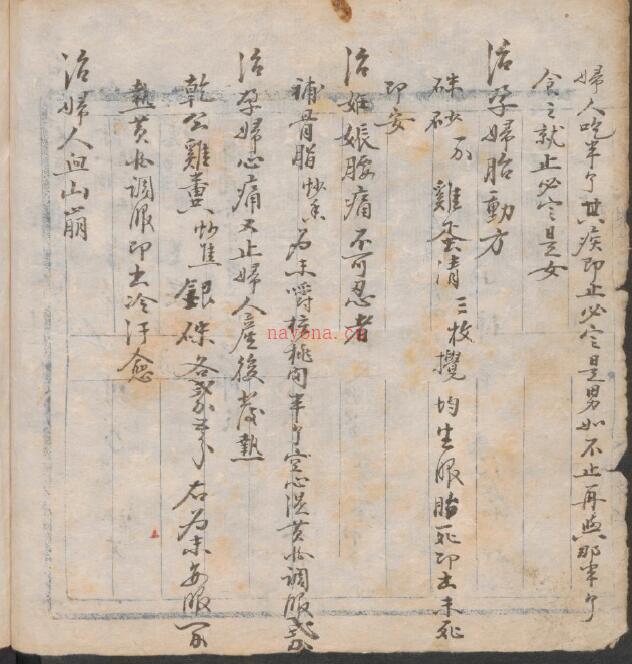 婦人吃半个其疾即止必定是男如不止再與那半个
令之就止必定是女
治孕婦胎動方
硃砂 雞蛋清三枚攪均生服胎死即出未死
即安
治妊娠腰痛不可忍者
補骨脂炒香為末嚼核桃肉半个空心温黄酒調服
治孕婦心痛又止婦人産後發熱
乾公雞糞炒焦 銀硃各 右為末每服
熱黄酒調服即出冷汗愈
治婦人血山崩
nayona.cn